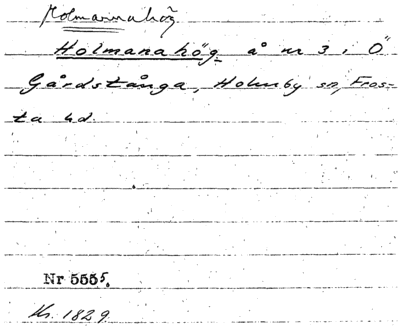 Holmannahög
Holmanahög å nr 3, Ö
Gårdstånga, Holmby sn, Fros-
ta hd.
Nr 5555.
Kr. 1829